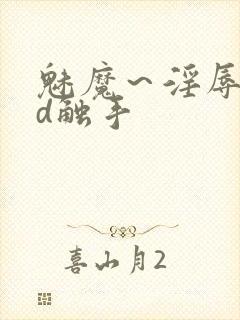 魅魔~淫辱
d触手
喜山月2